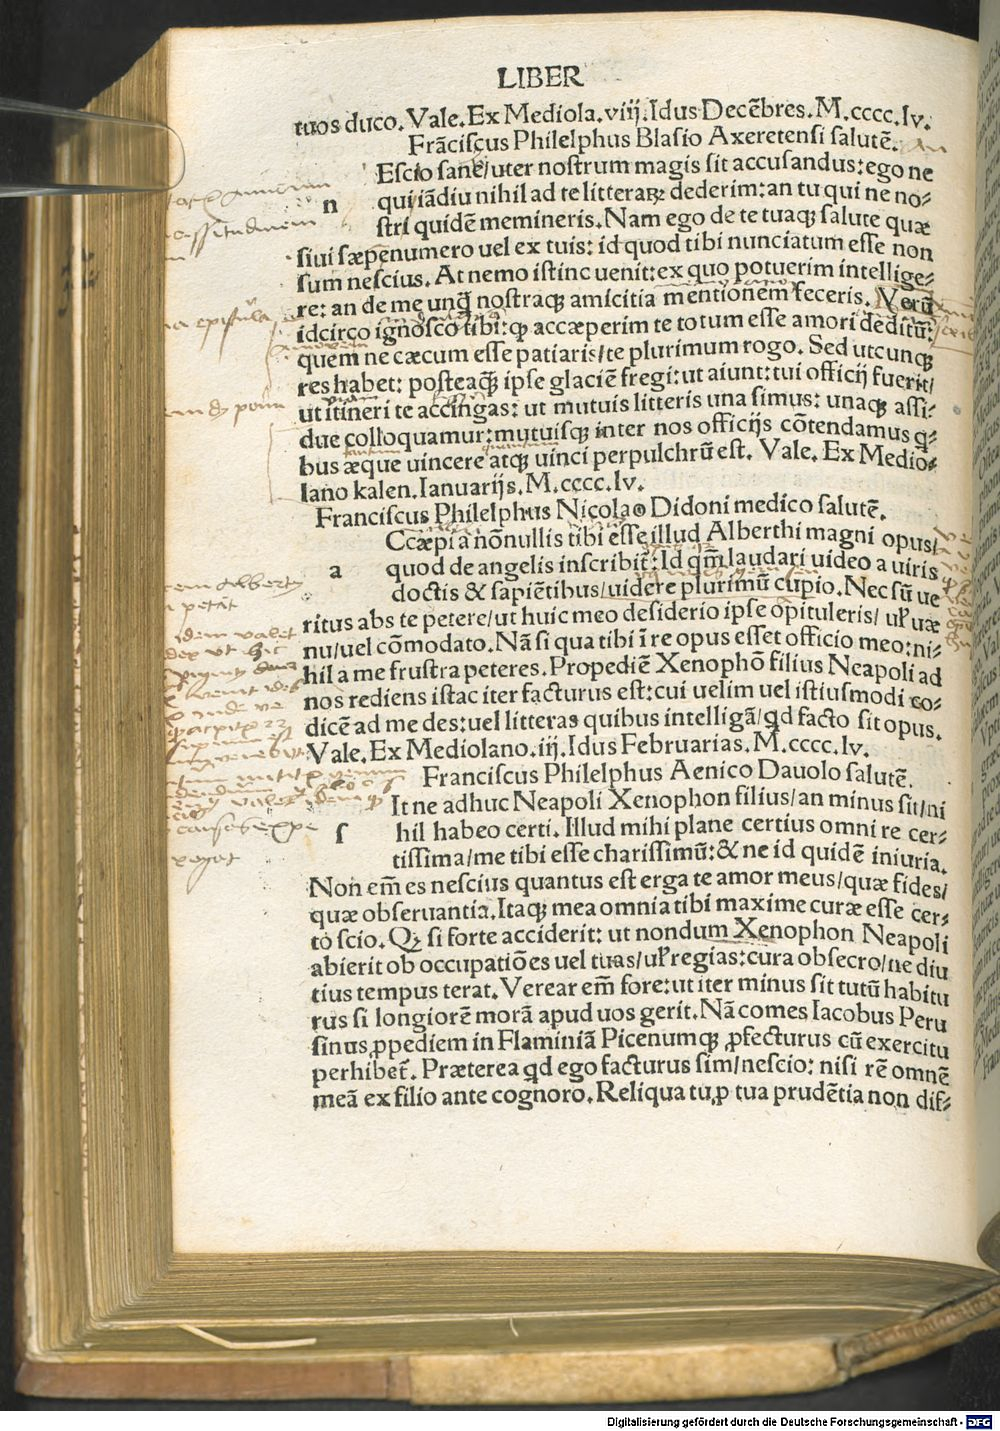 LIBER
tuos duco. Vale. Ex Mediola. viij. Idus Decēbres. M. cccc. lv.
Frāciscus Philelphus Blasio Axeretensi salutē.
Escio sane/uter nostrum magis sit accusandus: ego ne
n qui iādiu nihil ad te litteraꝝ dederim: an tu qui ne no⸗
stri quidē memineris. Nam ego de te tuaqꝫ salute quæ
siui sæpenumero uel ex tuis: id quod tibi nunciatum esse non
sum nescius. At nemo istinc uenit: ex quo potuerim intellige⸗
re: an de me unq̄ nostraqꝫ amicitia mentionem feceris. Verū
idcirco ignosco tibi: ꝙ accæperim te totum esse amori deditū:
quem ne cæcum esse patiaris/te plurimum rogo. Sed utcunqꝫ
res habet: posteaq̄ ipse glaciē fregi: ut aiunt: tui officij fuerit/
ut itineri te accingas: ut mutuis litteris una simus: unaqꝫ assi⸗
due colloquamur: mutuisqꝫ inter nos officijs cōtendamus q⸗
bus æque uincere atqꝫ uinci perpulchrū est. Vale. Ex Medio⸗
lano kalen. Ianuarijs. M. cccc. lv.
Franciscus Philelphus Nicolao Didoni medico salutē.
Ccæpi a nōnullis tibi esse illud Alberthi magni opus/
a quod de angelis inscribit̄: Id qm̄ laudari uideo a uiris
doctis & sapiētibus/uidere plurimū cupio. Nec sū ue
ritus abs te petere/ut huic meo desiderio ipse opituleris/ uł uæ
nu/uel cōmodato. Nā si qua tibi ī re opus esset officio meo: ni⸗
hil a me frustra peteres. Propediē Xenophō filius Neapoli ad
nos rediens istac iter facturus est: cui uelim uel istiusmodi co⸗
dicē ad me des: uel litteras quibus intelligā/ qd facto sit opus.
Vale. Ex Mediolano. iij. Idus Februarias. M. cccc. lv.
Franciscus Philelphus Aenico Dauolo salutē.
It ne adhuc Neapoli Xenophon filius/an minus sit/ni
s hil habeo certi. Illud mihi plane certius omni re cer⸗
tissima/me tibi esse charissimū: & ne id quidē iniuria.
Non em̄ es nescius quantus est erga te amor meus/quæ fides/
quæ obseruantia. Itaqꝫ mea omnia tibi maxime curæ esse cer⸗
to scio. Qꝫ si forte acciderit: ut nondum Xenophon Neapoli
abierit ob occupatiōes uel tuas/uł regias: cura obsecro/ne diu
tius tempus terat. Verear em̄ fore: ut iter minus sit tutū habitu
rus si longiorē morā apud uos gerit. Nā comes Iacobus Peru
sinus ꝓpediem in Flaminiā Picenumqꝫ ꝓfecturus cū exercitu
perhibet̄. Præterea qd ego facturus sim/nescio: nisi rē omnē
meā ex filio ante cognoro. Reliqua tu ꝓ tua prudētia non dif⸗
Digitalisierung gefördert durch die Deutsche Forschungsgemeinschaft - DFG